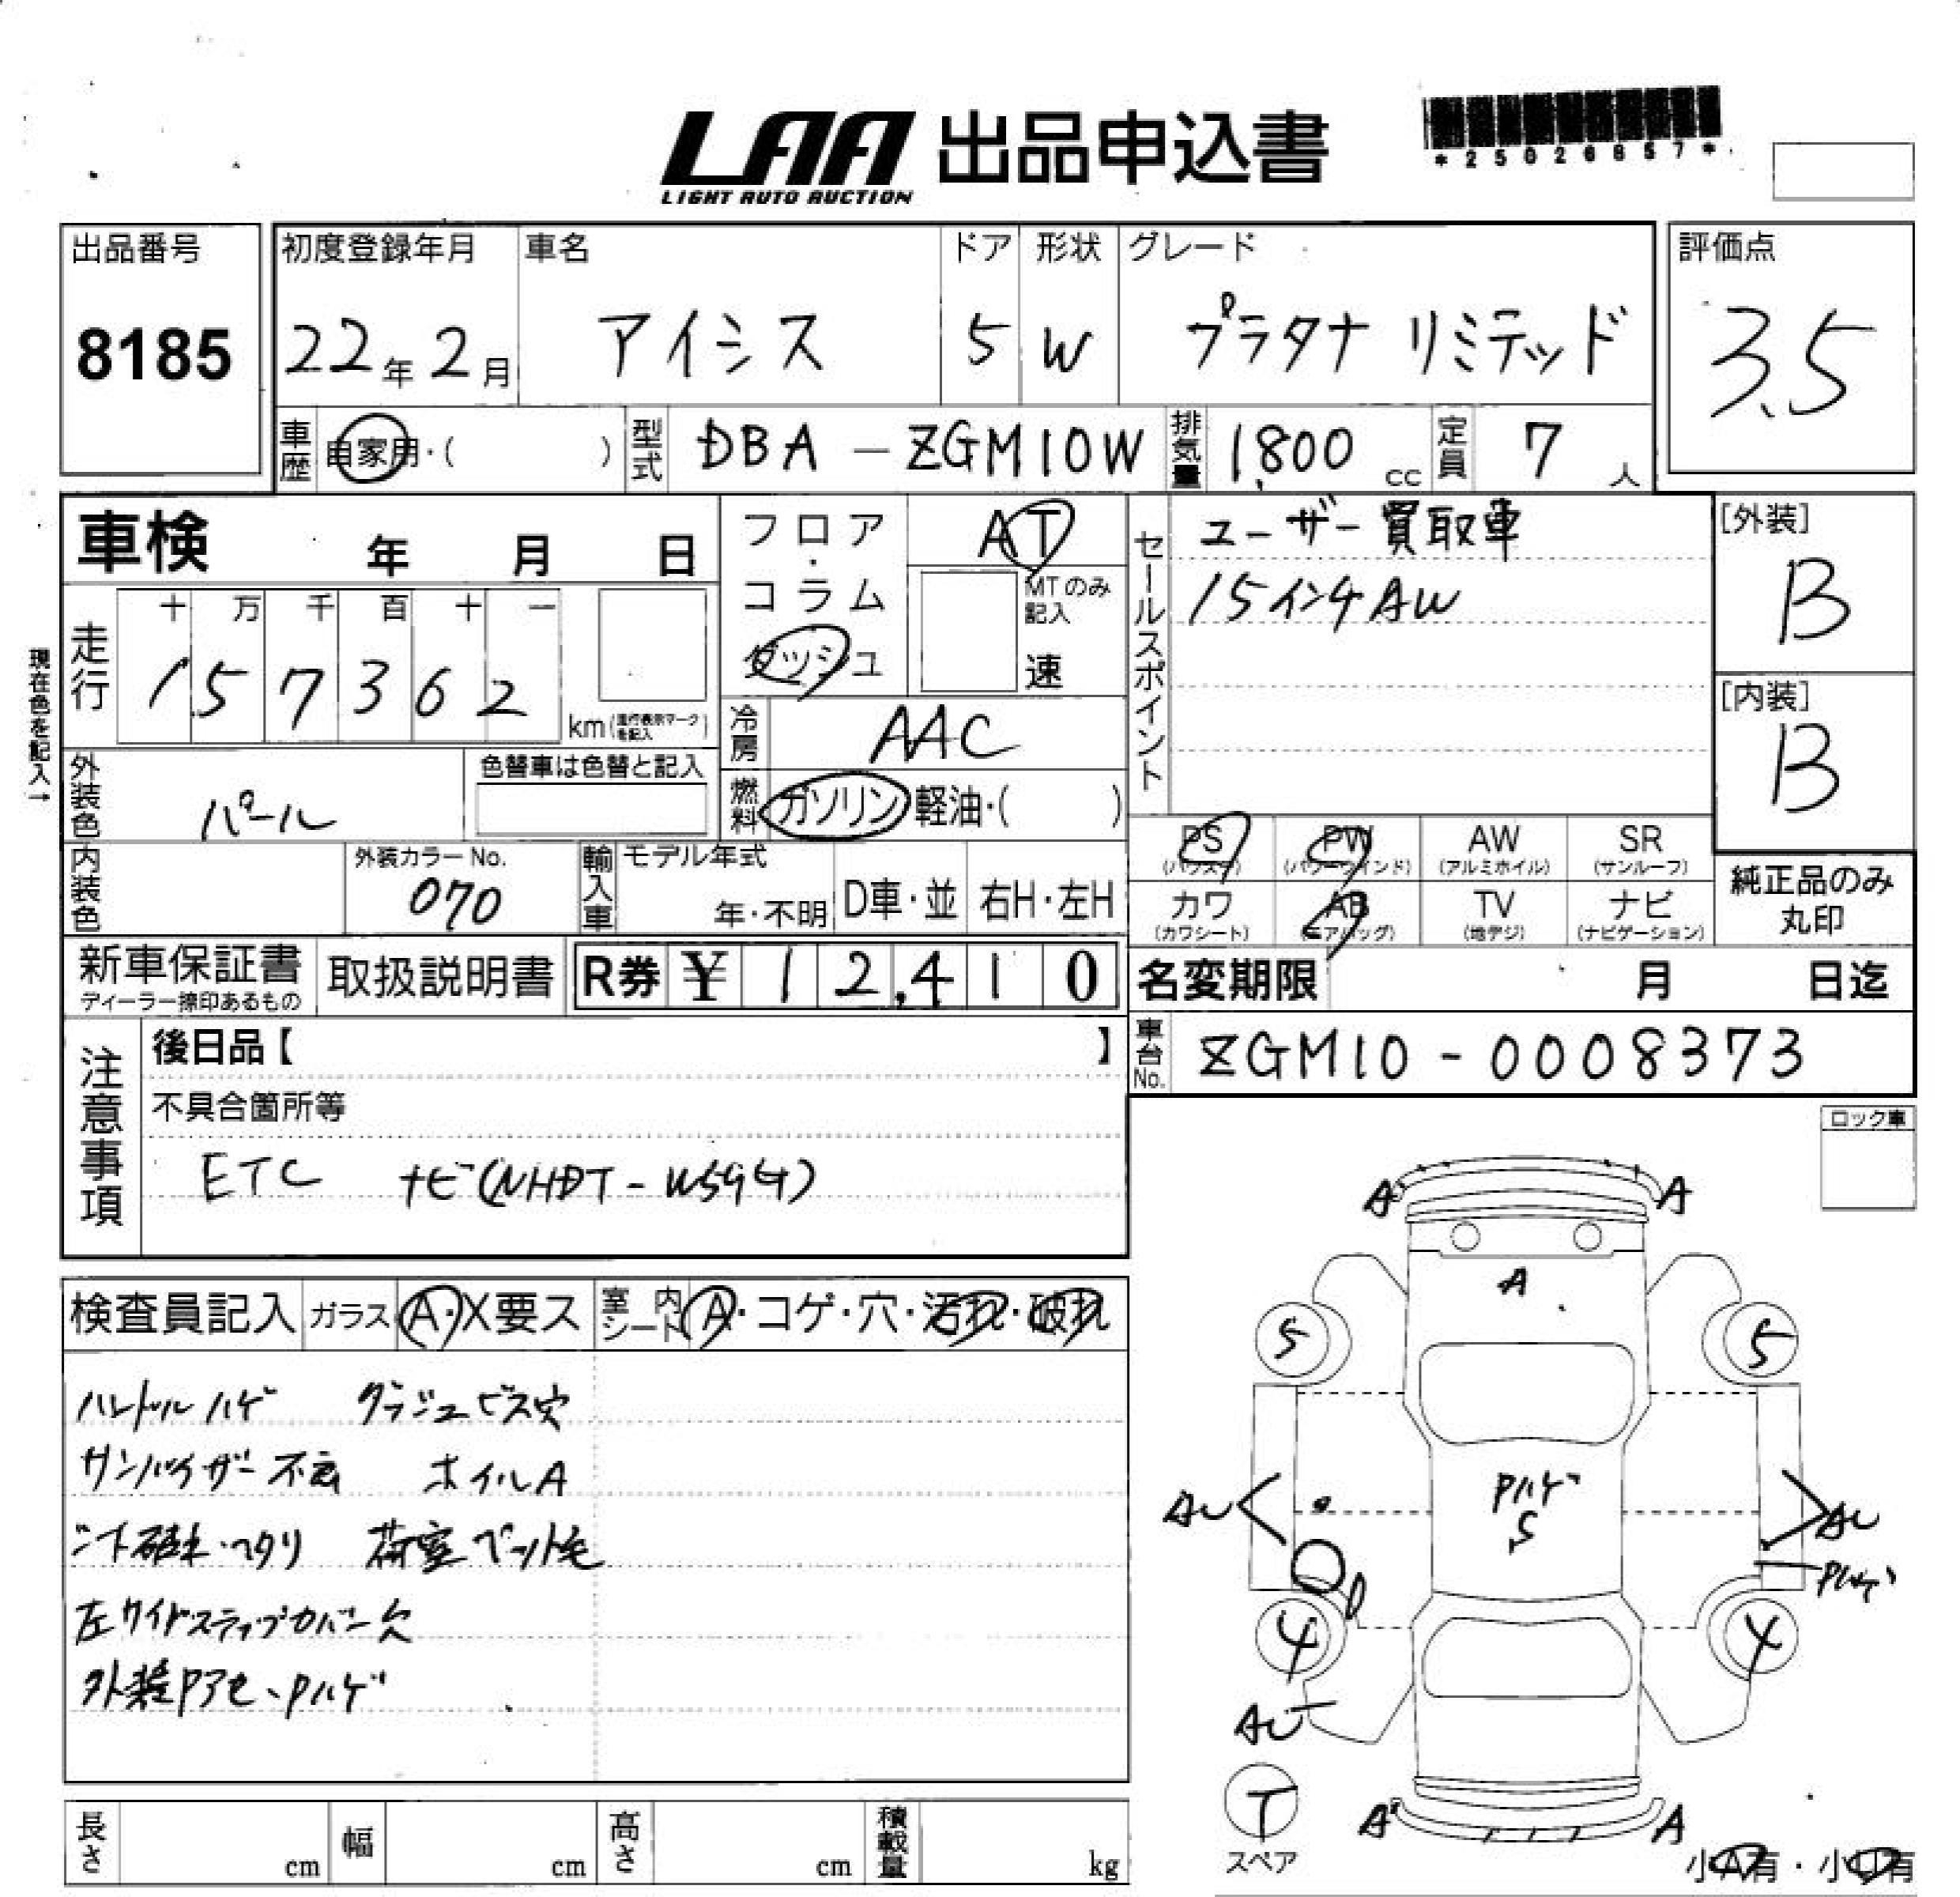 LAA 出品申込書
LIGHT AUTO AUCTION
*25026857*
出品番号 8185
初度登録年月 22年2月
車名 アイシス
ドア 5
形状 W
グレード プラタナ リミテッド
評価点 3.5
車歴 自家用・( )
型式 DBA-ZGM10W
排気量 1,800 cc
定員 7 人
車検 年 月 日
フロア・コラム ダッシュ
AT
MTのみ記入 速
セールスポイント ユーザー買取車
15インチAW
[外装] B
[内装] B
現在色を記入→
走行 十 万 千 百 十 一
157362 km(走行表示マークを記入)
冷房 AAC
燃料 ガソリン 軽油・( )
外装色 パール
色替車は色替と記入
内装色
外装カラーNo. 070
輸入車 モデル年式 年・不明 D車・並 右H・左H
PS (パワステ) PW (パワーウインド) AW (アルミホイル) SR (サンルーフ)
カワ (カワシート) AB (エアバッグ) TV (地デジ) ナビ (ナビゲーション)
純正品のみ丸印
新車保証書 ディーラー捺印あるもの
取扱説明書
R券 ¥12,410
名変期限 月 日迄
車台No. ZGM10-0008373
注意事項
後日品【 】
不具合箇所等
ETC ナビ(NHDT-W59G)
ロック車
検査員記入 ガラス A・X要ス 室内シート A・コゲ・穴・汚れ・破れ
ハンドルハゲ ダッシュビス穴
サンバイザー不良 ホイルA
シート破れ・ヘタリ 荷室ペット毛
左サイドステップカバー欠
外装Pアセ、Pハゲ
A A
A
5 5
AU Pハゲ S AU
Pハゲ
4 4
AU
T
スペア
A A
小A有・小U有
長さ cm 幅 cm 高さ cm 積載量 kg